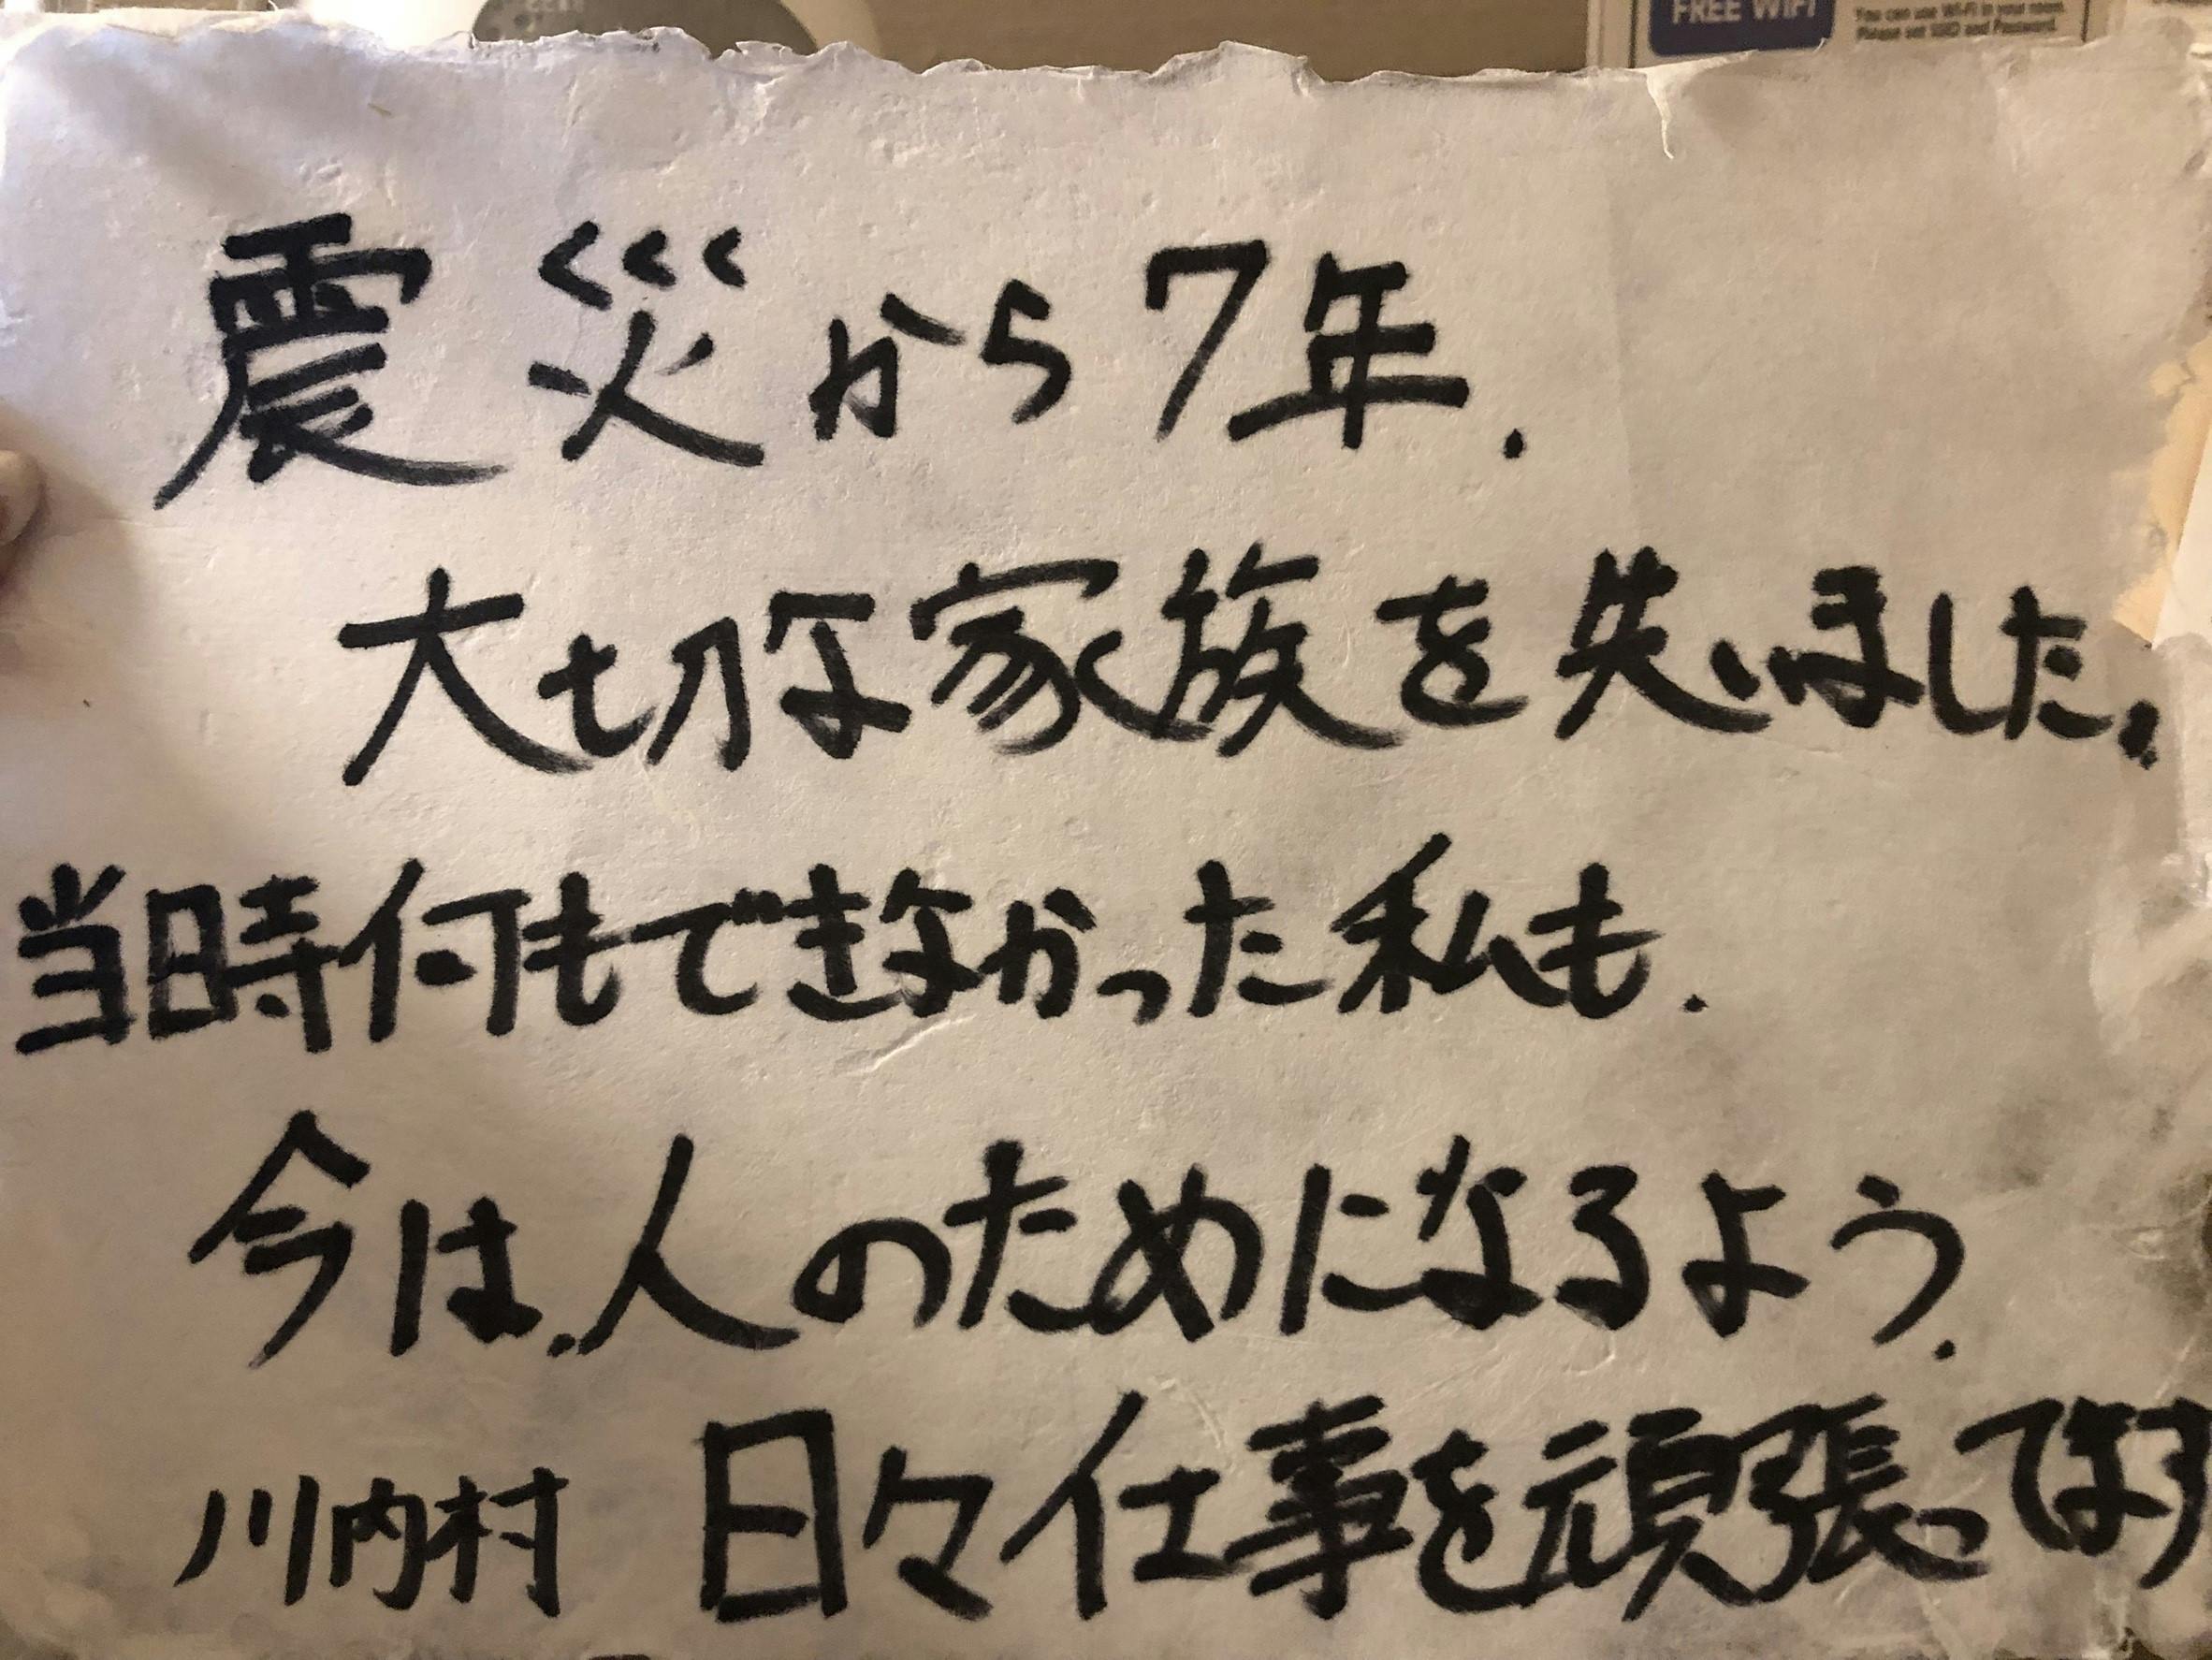 FREE WIFI
You can use Wi-Fi in your room.
Please set SSID and Password.
震災から7年.
大切な家族を失いました。
当時何もできなかった私も.
今は.人のためになるよう.
川内村 日々仕事を頑張ってます